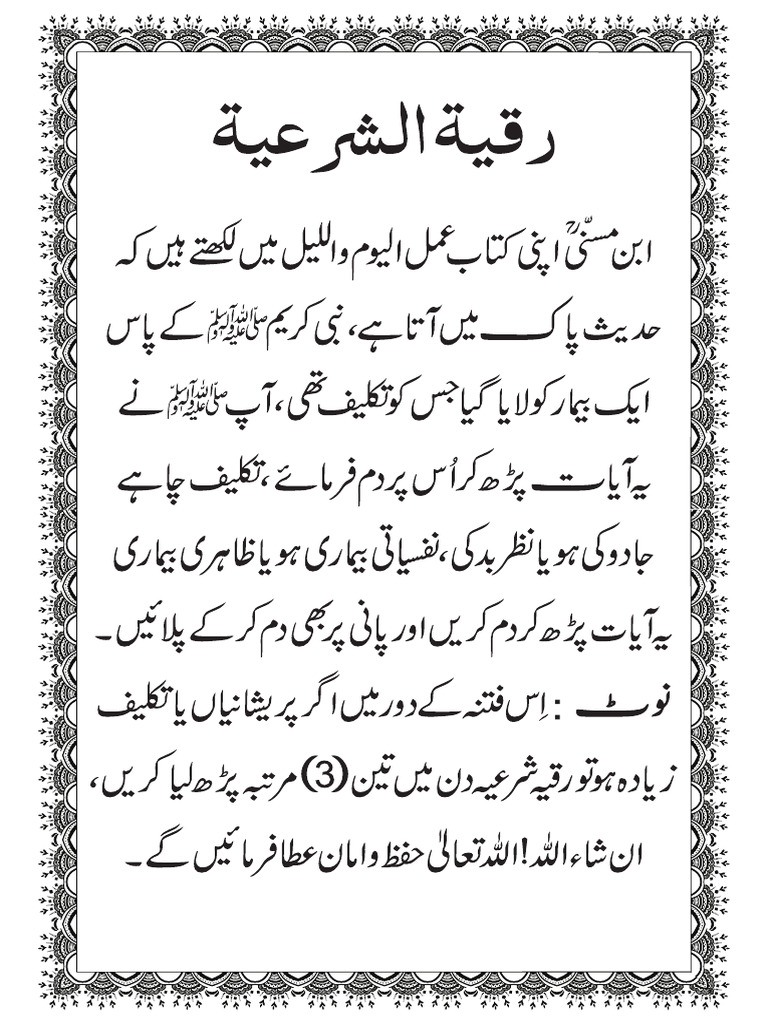 رقیة الشرعیة
ابن مسنّیؒ اپنی کتاب عمل الیوم واللیل میں لکھتے ہیں کہ
حدیث پاک میں آتا ہے، نبی کریم ﷺ کے پاس
ایک بیمار کو لایا گیا جس کو تکلیف تھی، آپ ﷺ نے
یہ آیات پڑھ کر اُس پر دم فرمائے، تکلیف چاہے
جادو کی ہو یا نظر بد کی، نفسیاتی بیماری ہو یا ظاہری بیماری
یہ آیات پڑھ کر دم کریں اور پانی پر بھی دم کر کے پلائیں۔
نوٹ : اِس فتنہ کے دور میں اگر پریشانیاں یا تکلیف
زیادہ ہو تو رقیہ شرعیہ دن میں تین (3) مرتبہ پڑھ لیا کریں،
ان شاء اللہ! اللہ تعالیٰ حفظ و امان عطا فرمائیں گے۔